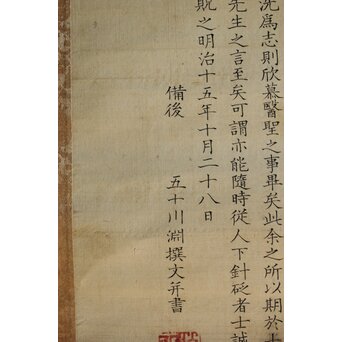 況爲志則欣慕醫聖之事畢矣此余之所以期於
先生之言至矣可謂亦能隨時從人下針砭者士誠
貺之明治十五年十月二十八日
備後　五十川淵撰文并書